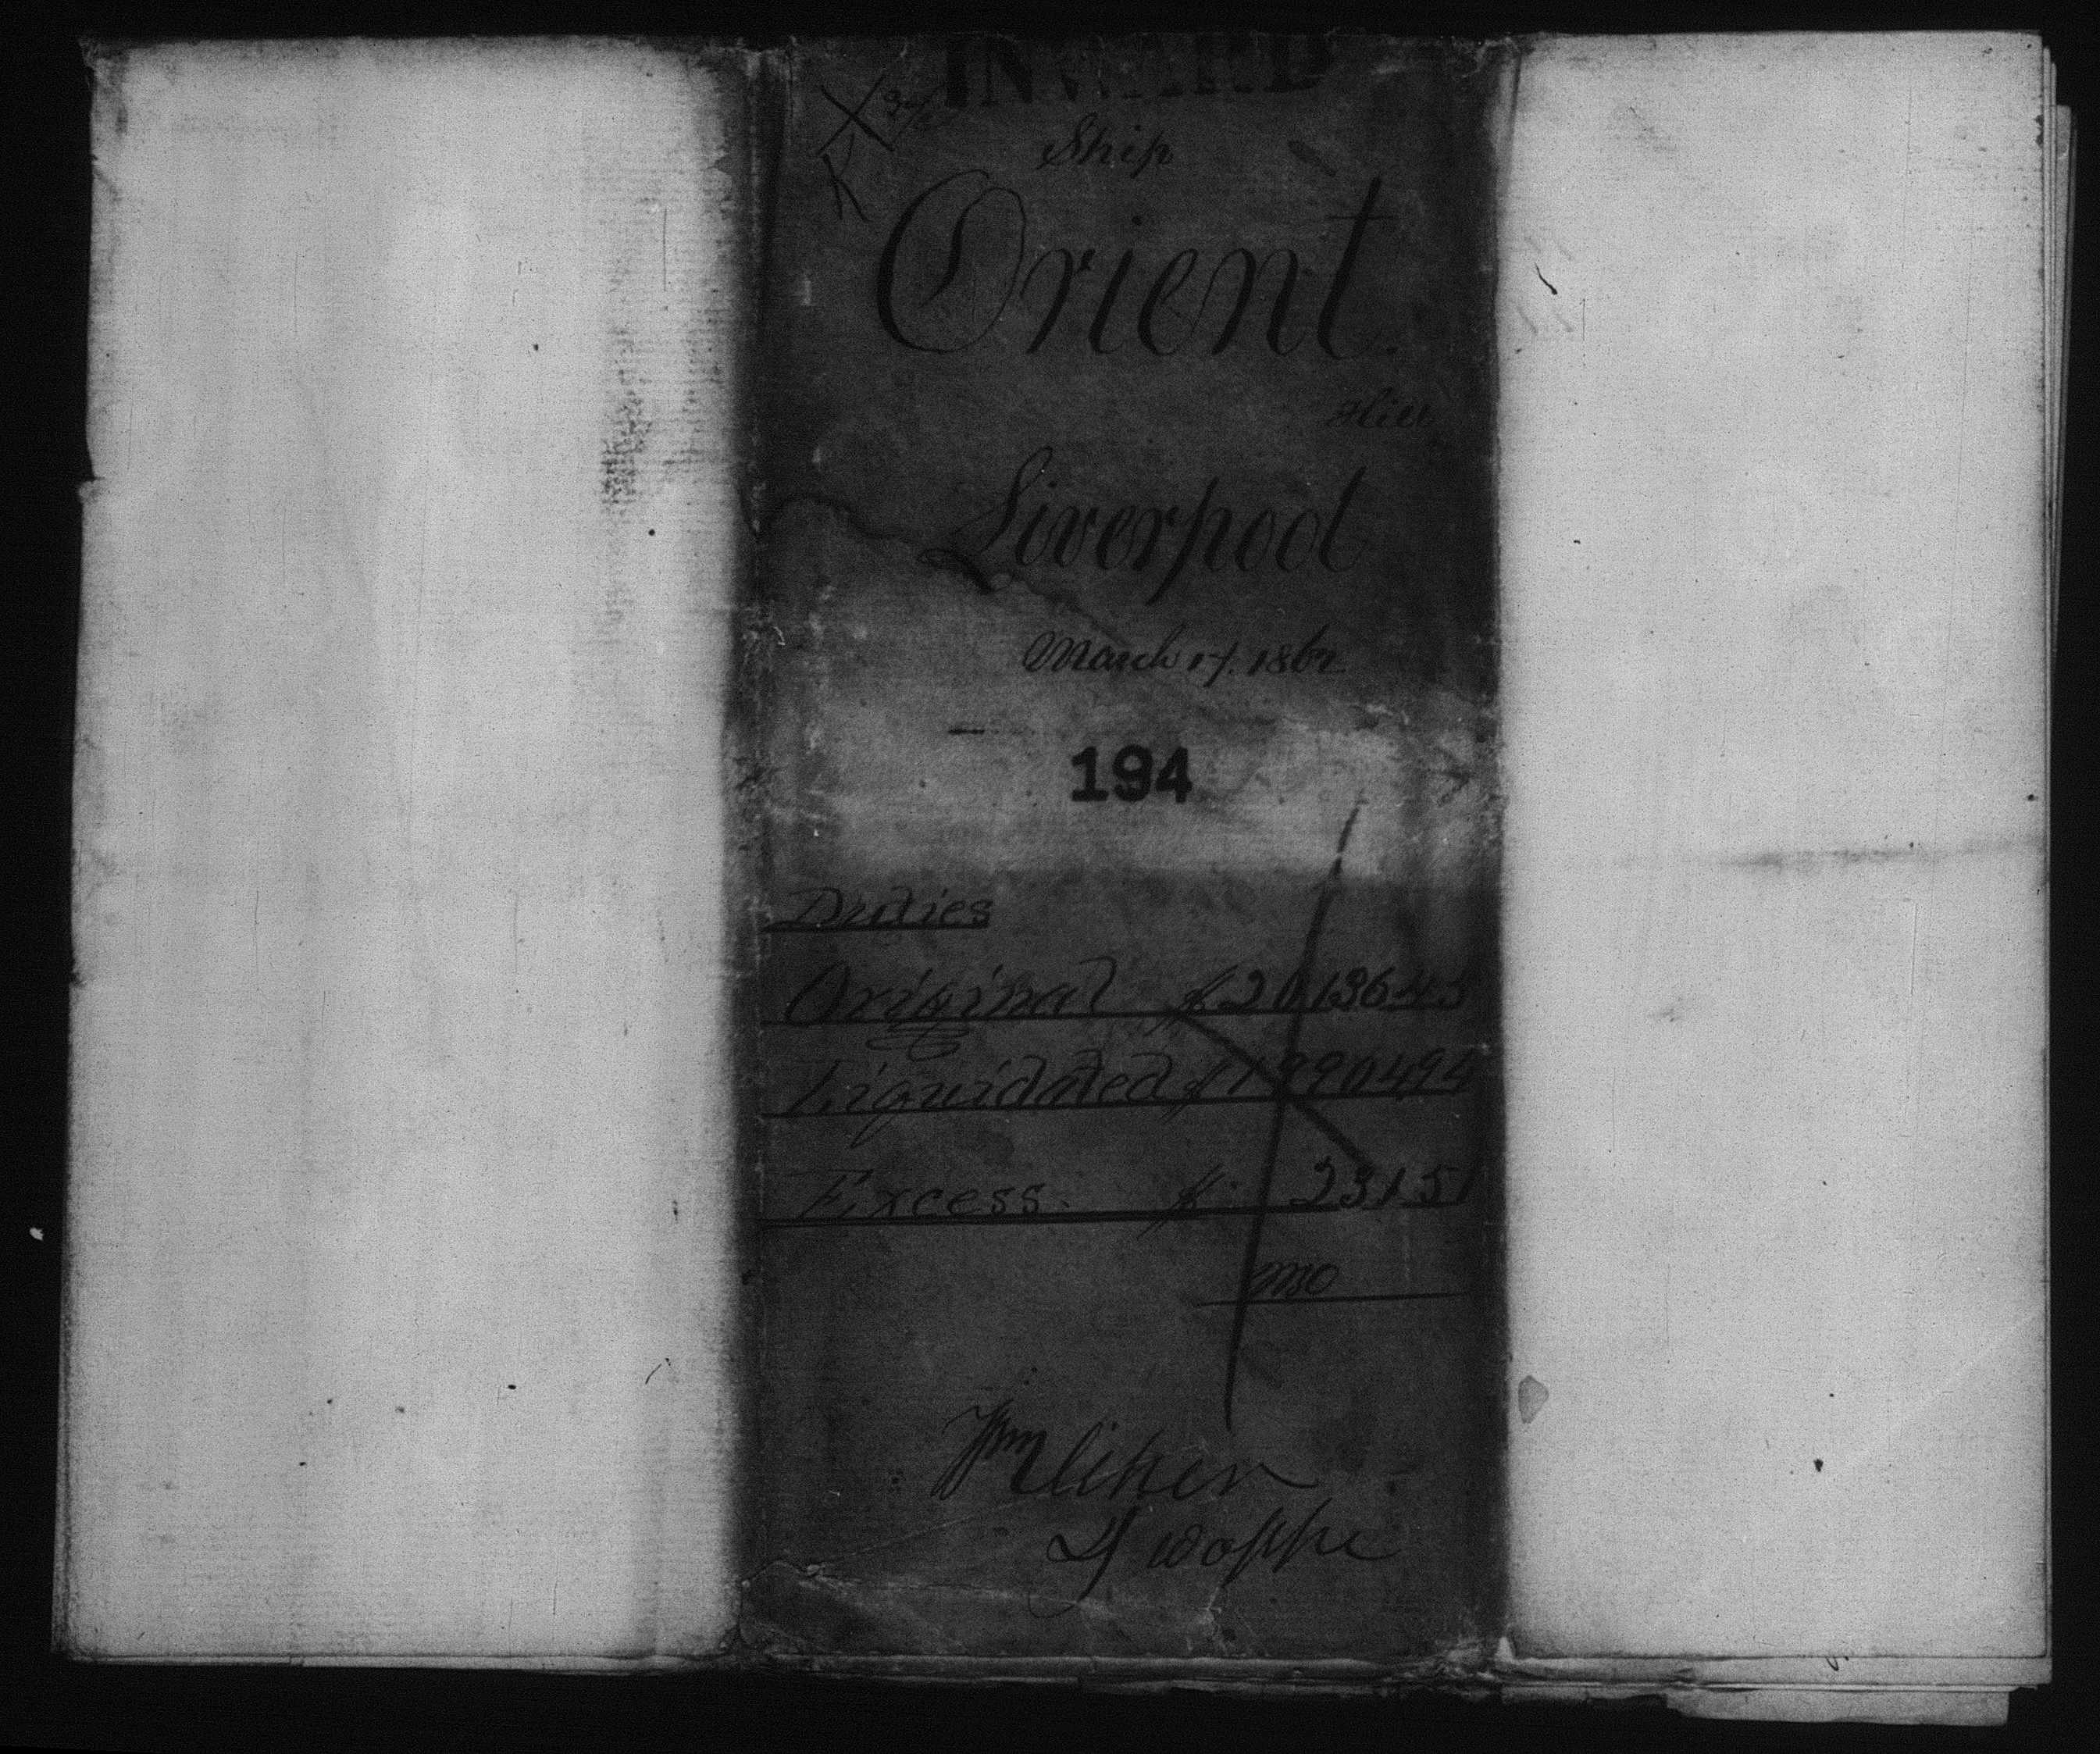 INWARD
Ship
Orient.
Liverpool
March 17. 1862
194
Duties
Original $ 2013645
Liquidated $ 1990494
Excess. $ 23151